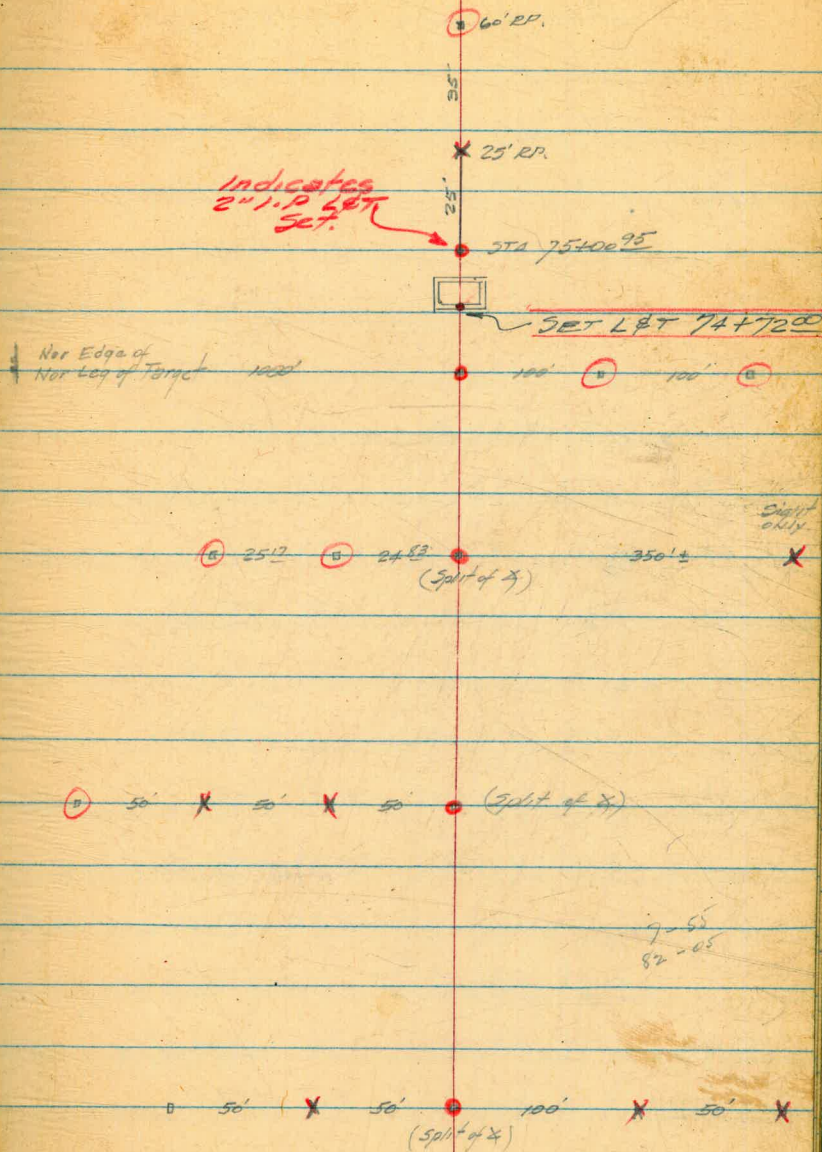 60' R.P.
35'
25' R.P.
25'
Indicates
2" I.P. L&T
Set.
STA 75+00 95
SET L&T 74+72 00
Nor Edge of
Nor Leg of Target 1000' 100' 100'
Sight
only.
25 17 24 83 350' ±
(Split of ∡)
50' 50' 50' (Split of ∡)
7-55
82-05
50' 50' 100' 50'
(Split of ∡)